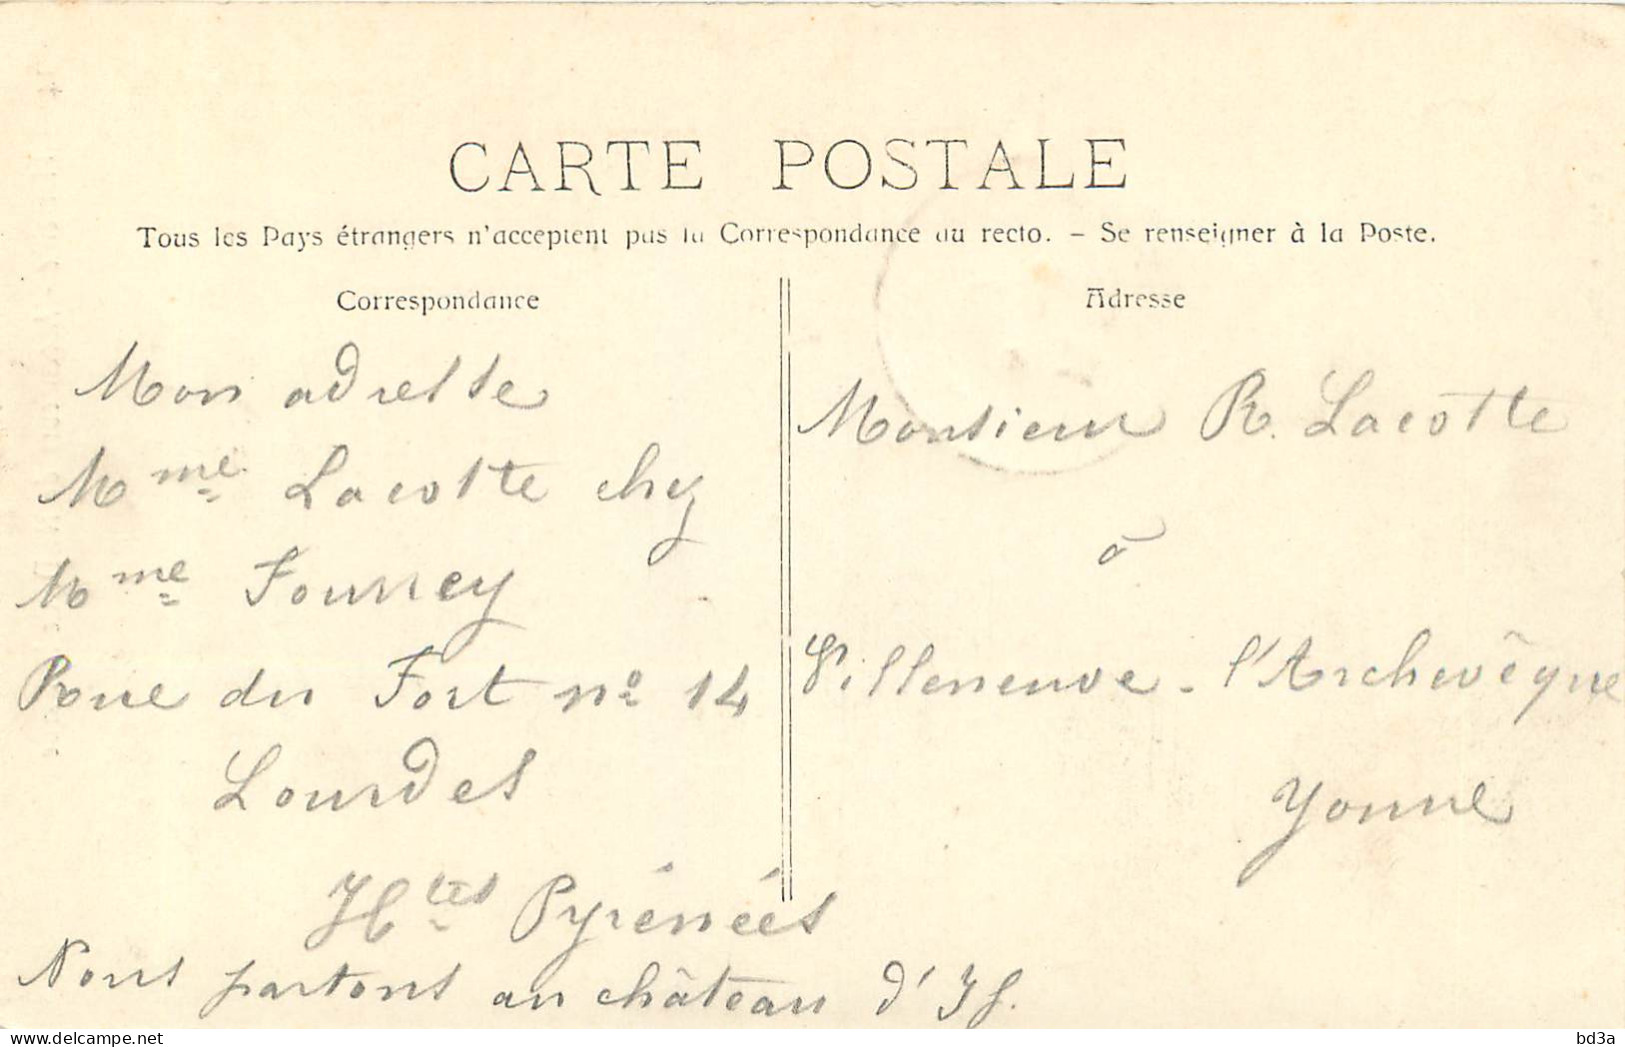 CARTE POSTALE
Tous les Pays étrangers n'acceptent pas la Correspondance au recto. – Se renseigner à la Poste.
Correspondance
Mon adresse
Mme Lacotte chez
Mme Fourrey
Rue du Fort no 14
Lourdes
Htes Pyrénées
Nous partons au château d'If.
Adresse
Monsieur R. Lacotte
à
Villeneuve-l'Archevêque
Yonne
bd3a